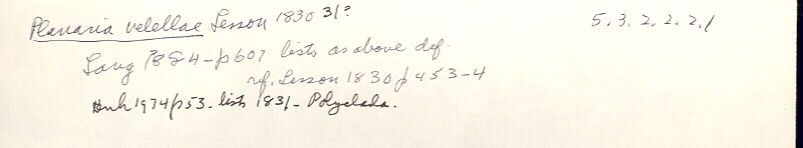 Planaria velellae Lesson 1830 31? 5.3.2.2.2.1
Lang 1884-p607 lists as above def.
ref. Lesson 1830 p 453-4
1974 p53. lists 1831- Polyclada.